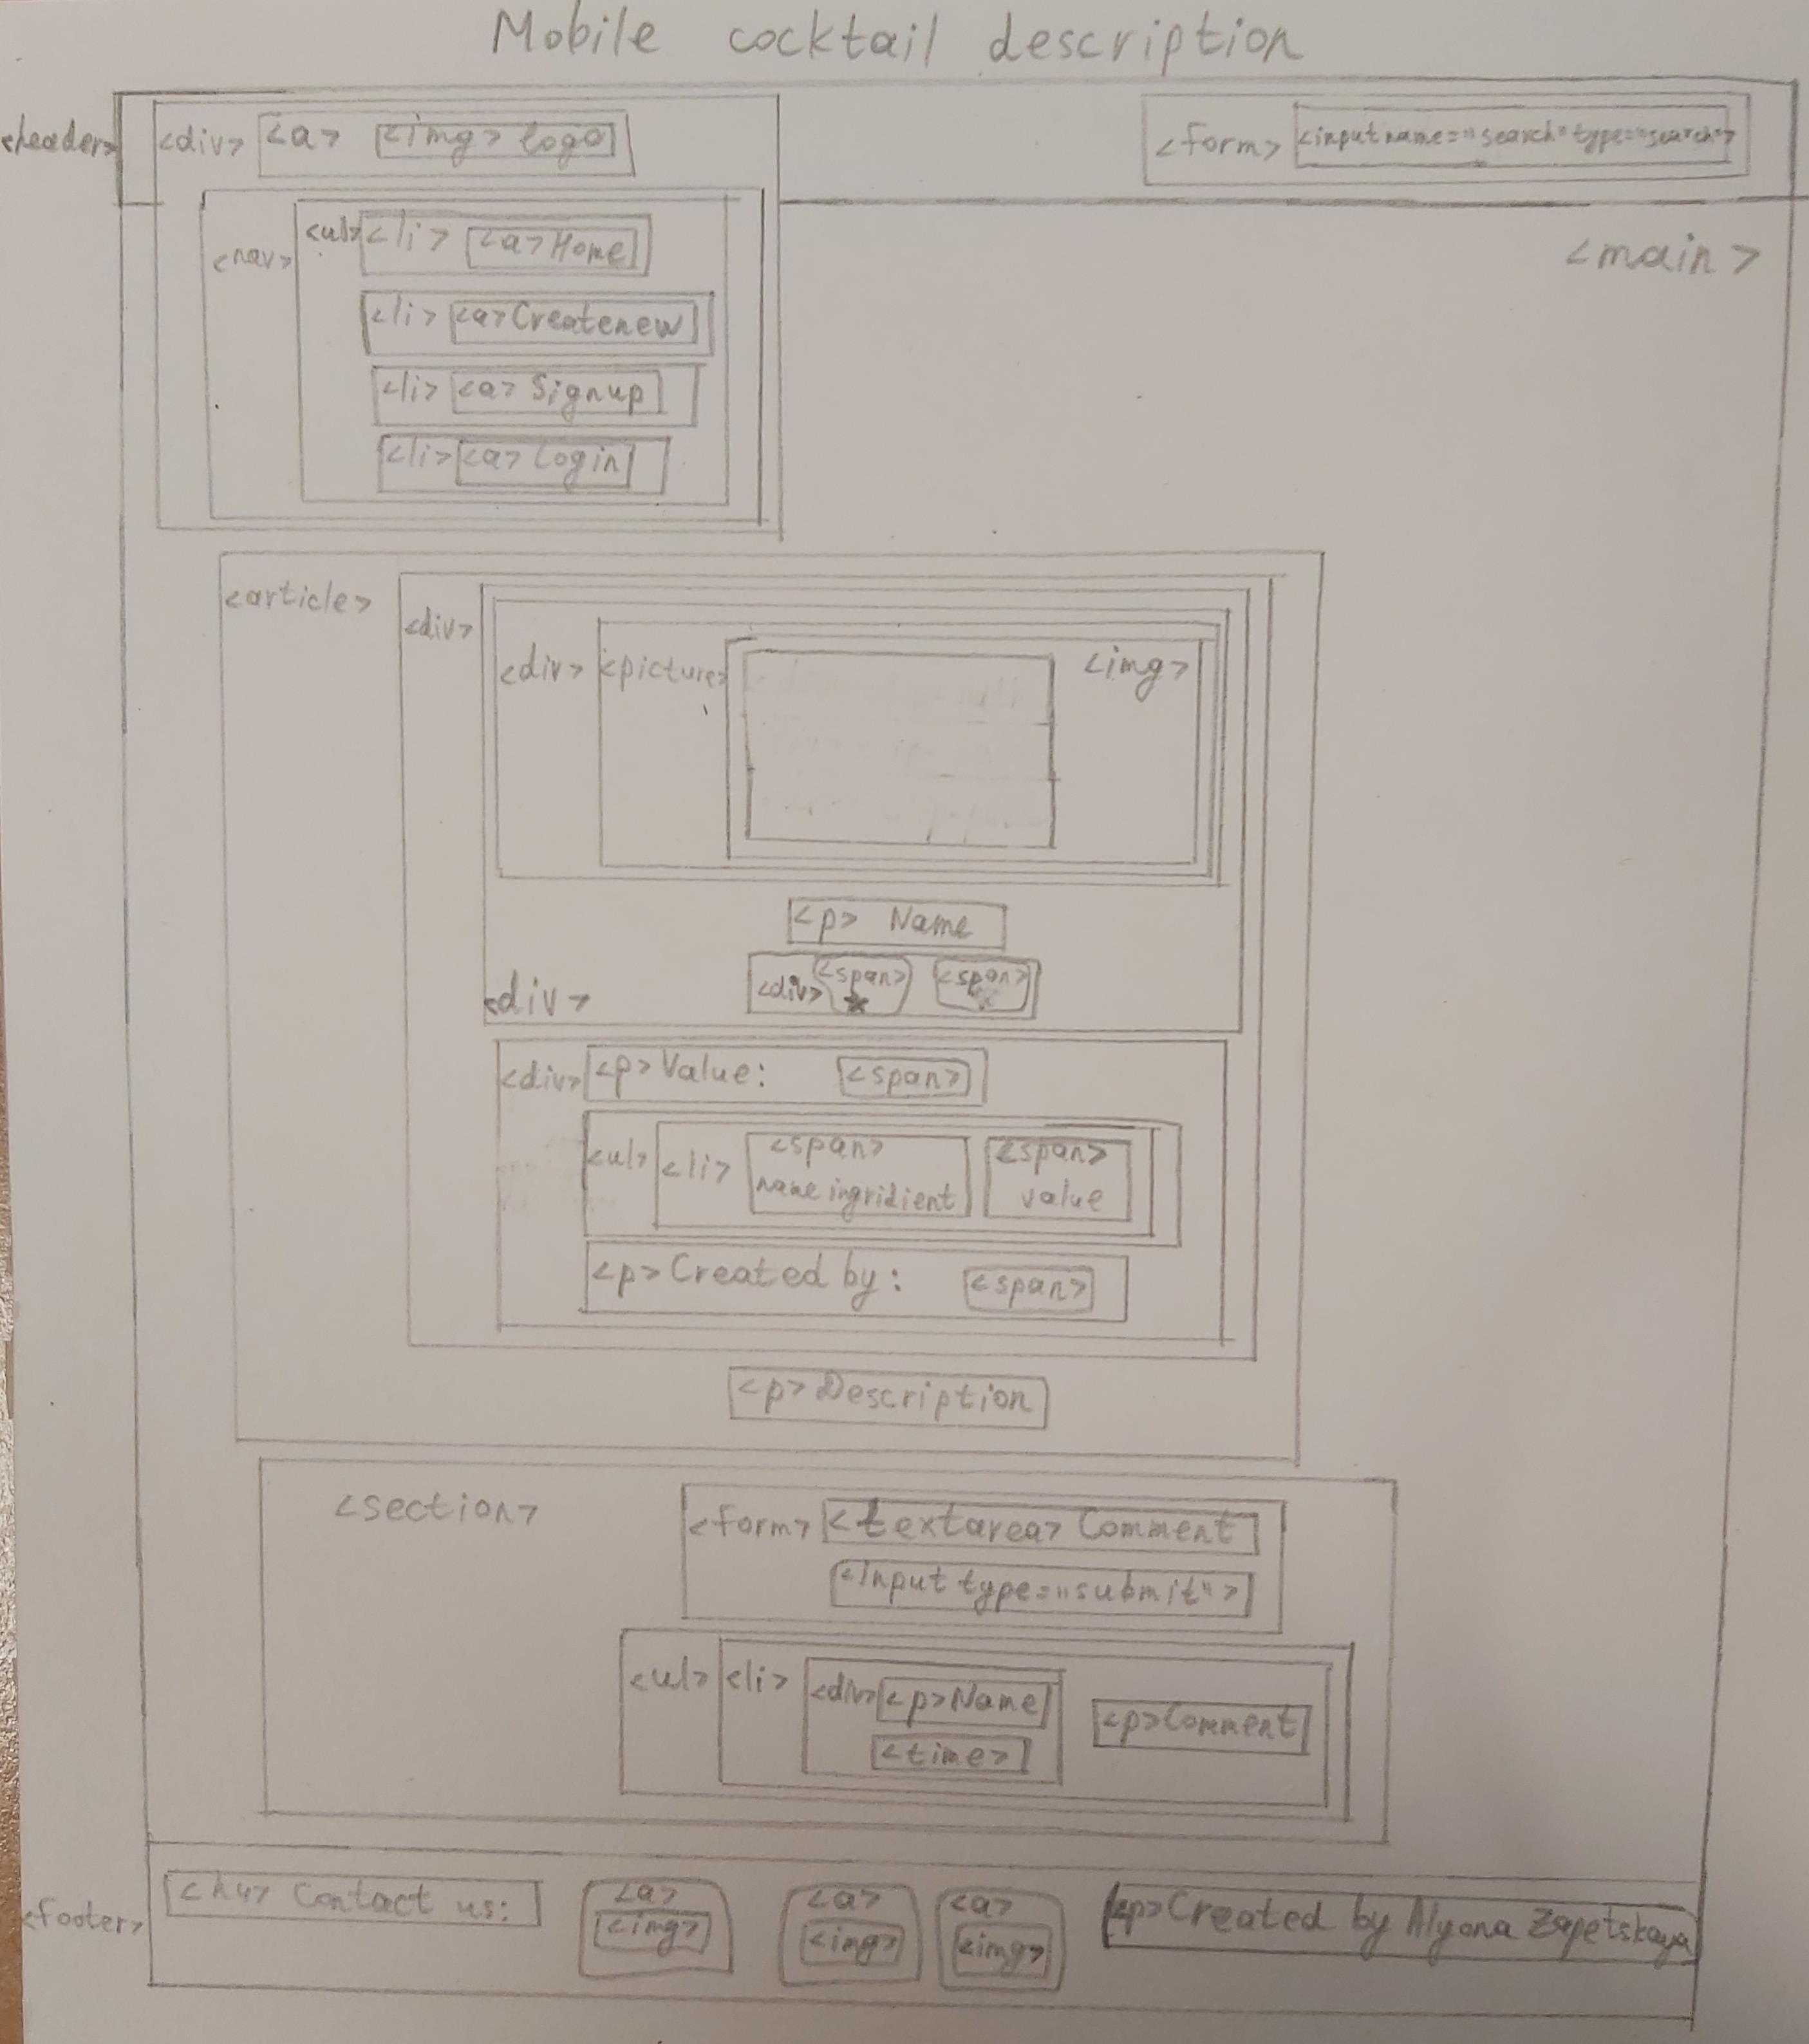 Mobile cocktail description
<header> <div> <a> <img> logo <form> <input name="search" type="search">
<nav> <ul> <li> <a> Home
<main>
<li> <a> Createnew
<li> <a> Signup
<li> <a> Login
<article>
<div>
<div> <picture> <img>
<p> Name
<div> <div> <span> <span>
<div> <p> Value: <span>
<ul> <li> <span> name ingridient <span> value
<p> Created by: <span>
<p> Description
<section> <form> <textarea> Comment
<Input type="submit">
<ul> <li> <div> <p> Name
<p> Comment
<time>
<footer> <h4> Contact us: <a> <img> <a> <img> <a> <img> <p> Created by Alyona Zapetskaya